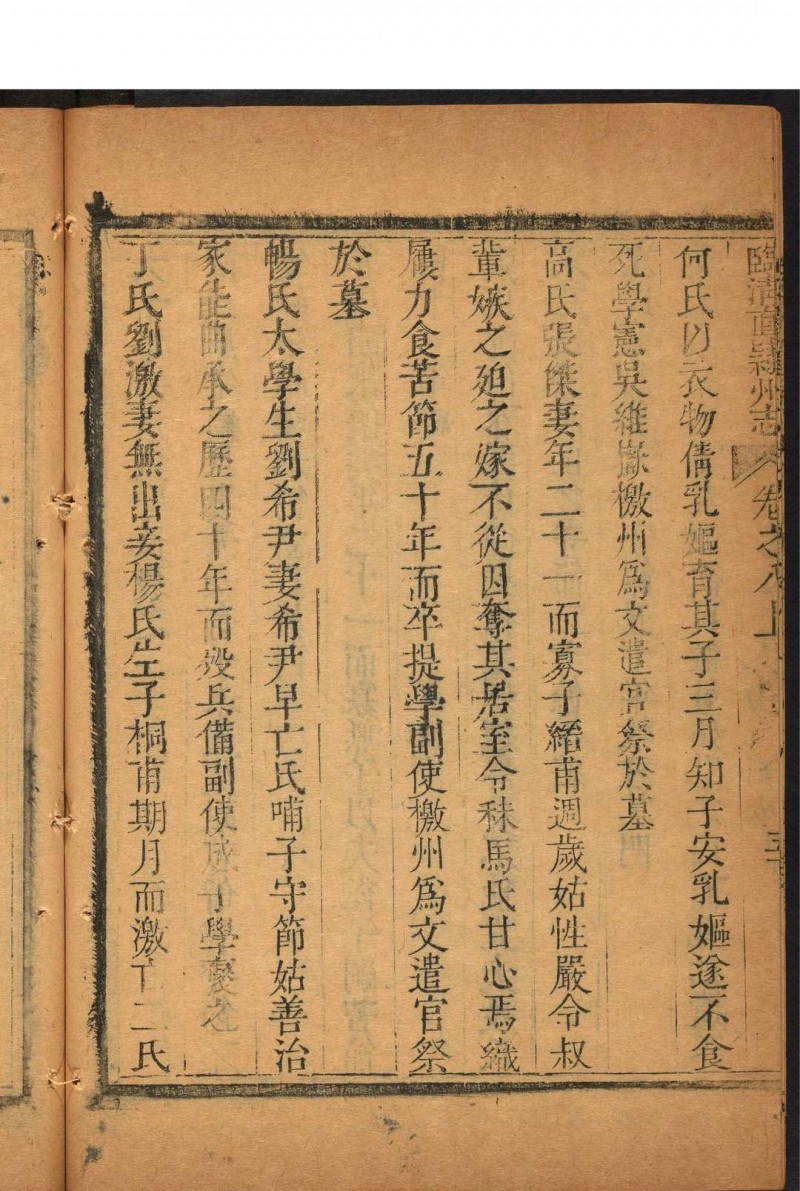 臨清直隸州志 卷之八上
何氏以衣物倩乳嫗育其子三月知子安乳嫗遂不食
死學憲吳維嶽檄州爲文遣官祭於墓
高氏張傑妻年二十一而寡子縉甫週歲姑性嚴令叔
輩嫉之廹之嫁不從因奪其居室令秣馬氏甘心焉織
屨力食苦節五十年而卒提學副使檄州爲文遣官祭
於墓
暢氏太學生劉希尹妻希尹早亡氏哺子守節姑善治
家能曲承之歷四十年而殁兵備副使於學褒之
丁氏劉激妻無出妾楊氏生子桐甫期月而激亡二氏